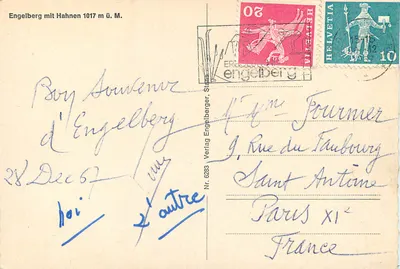 Engelberg mit Hahnen 1017 m ü. M.
20
HELVETIA
HELVETIA
10
engelberg
Bon Souvenir
d'Engelberg
28 Dec 67
moi
l'autre
Nr. 6283 - Verlag Engelberger, Stans
Mr Mme Fournier
9, Rue du Faubourg
Saint Antoine
Paris XIe
France